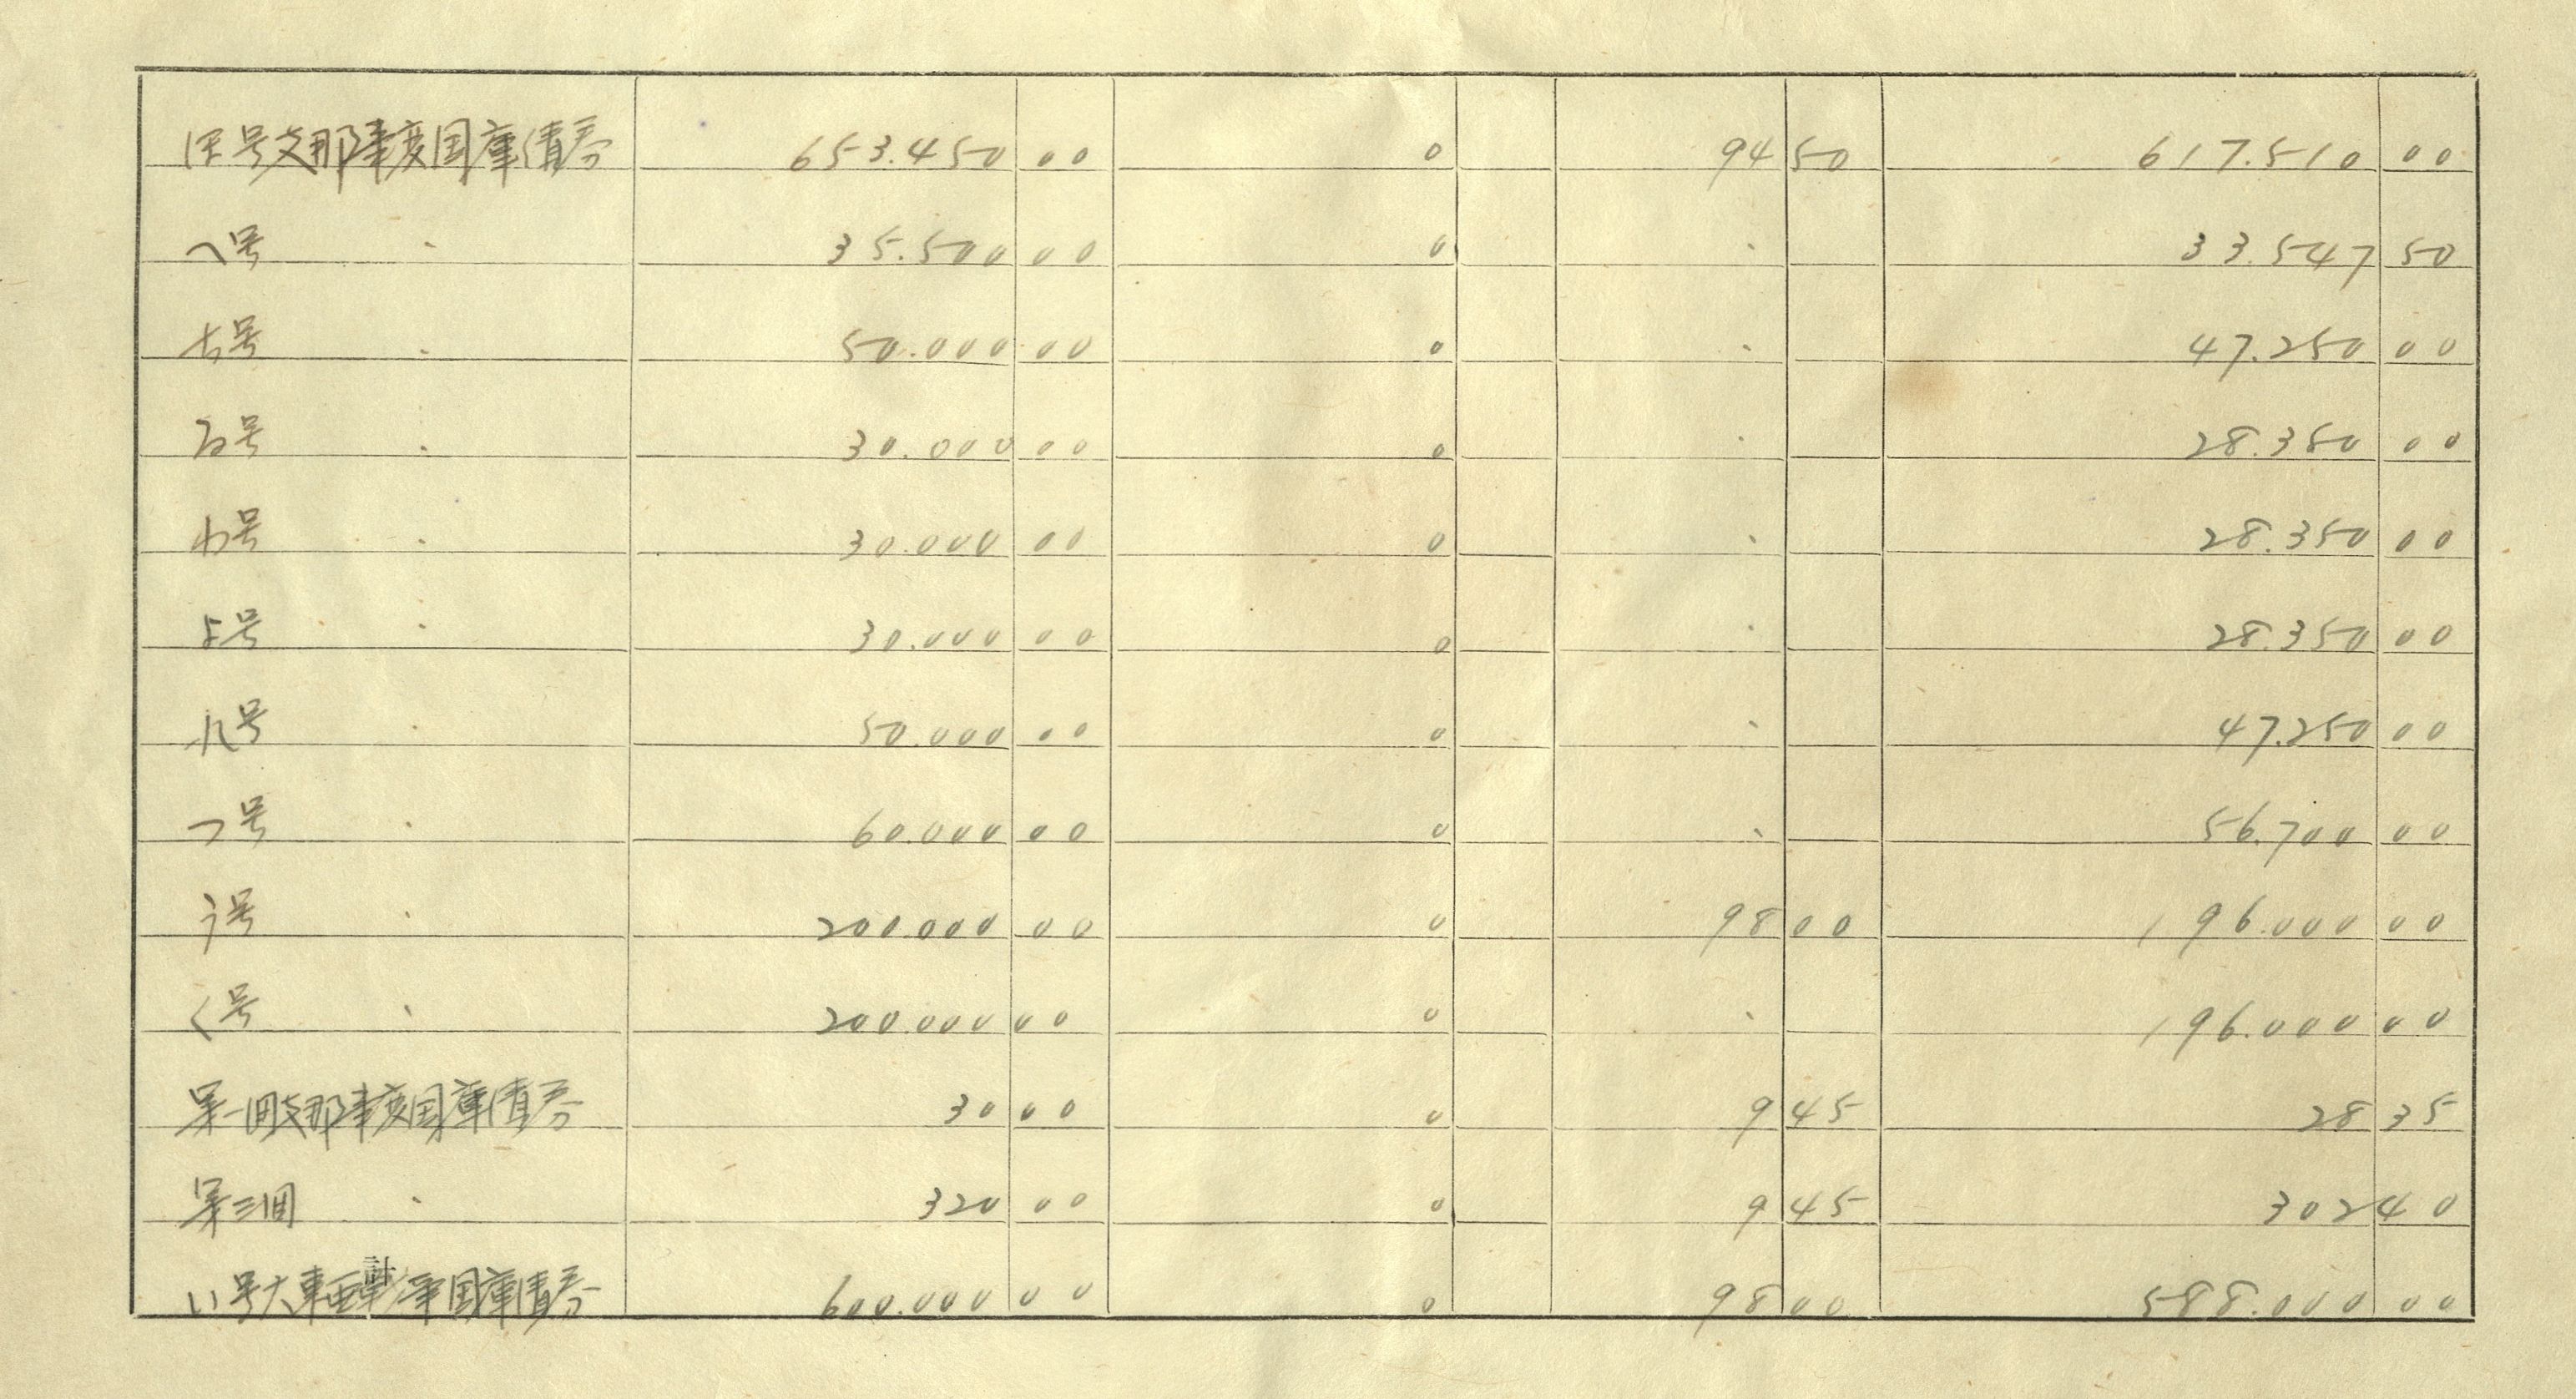 ほ号支那事変国庫債券 653.450 00 0 94 50 617.510 00
へ号 〃 35.500 00 0 〃 33.547 50
ち号 〃 50.000 00 0 〃 47.250 00
る号 〃 30.000 00 0 〃 28.350 00
わ号 〃 30.000 00 0 〃 28.350 00
よ号 〃 30.000 00 0 〃 28.350 00
れ号 〃 50.000 00 0 〃 47.250 00
つ号 〃 60.000 00 0 〃 56.700 00
う号 〃 200.000 00 0 98 00 196.000 00
く号 〃 200.000 00 0 〃 196.000 00
第一回支那事変国庫債券 30 00 0 9 45 28 35
第三回 〃 320 00 0 9 45 302 40
い号大東亜戦争国庫債券 600.000 00 0 98 00 588.000 00
計